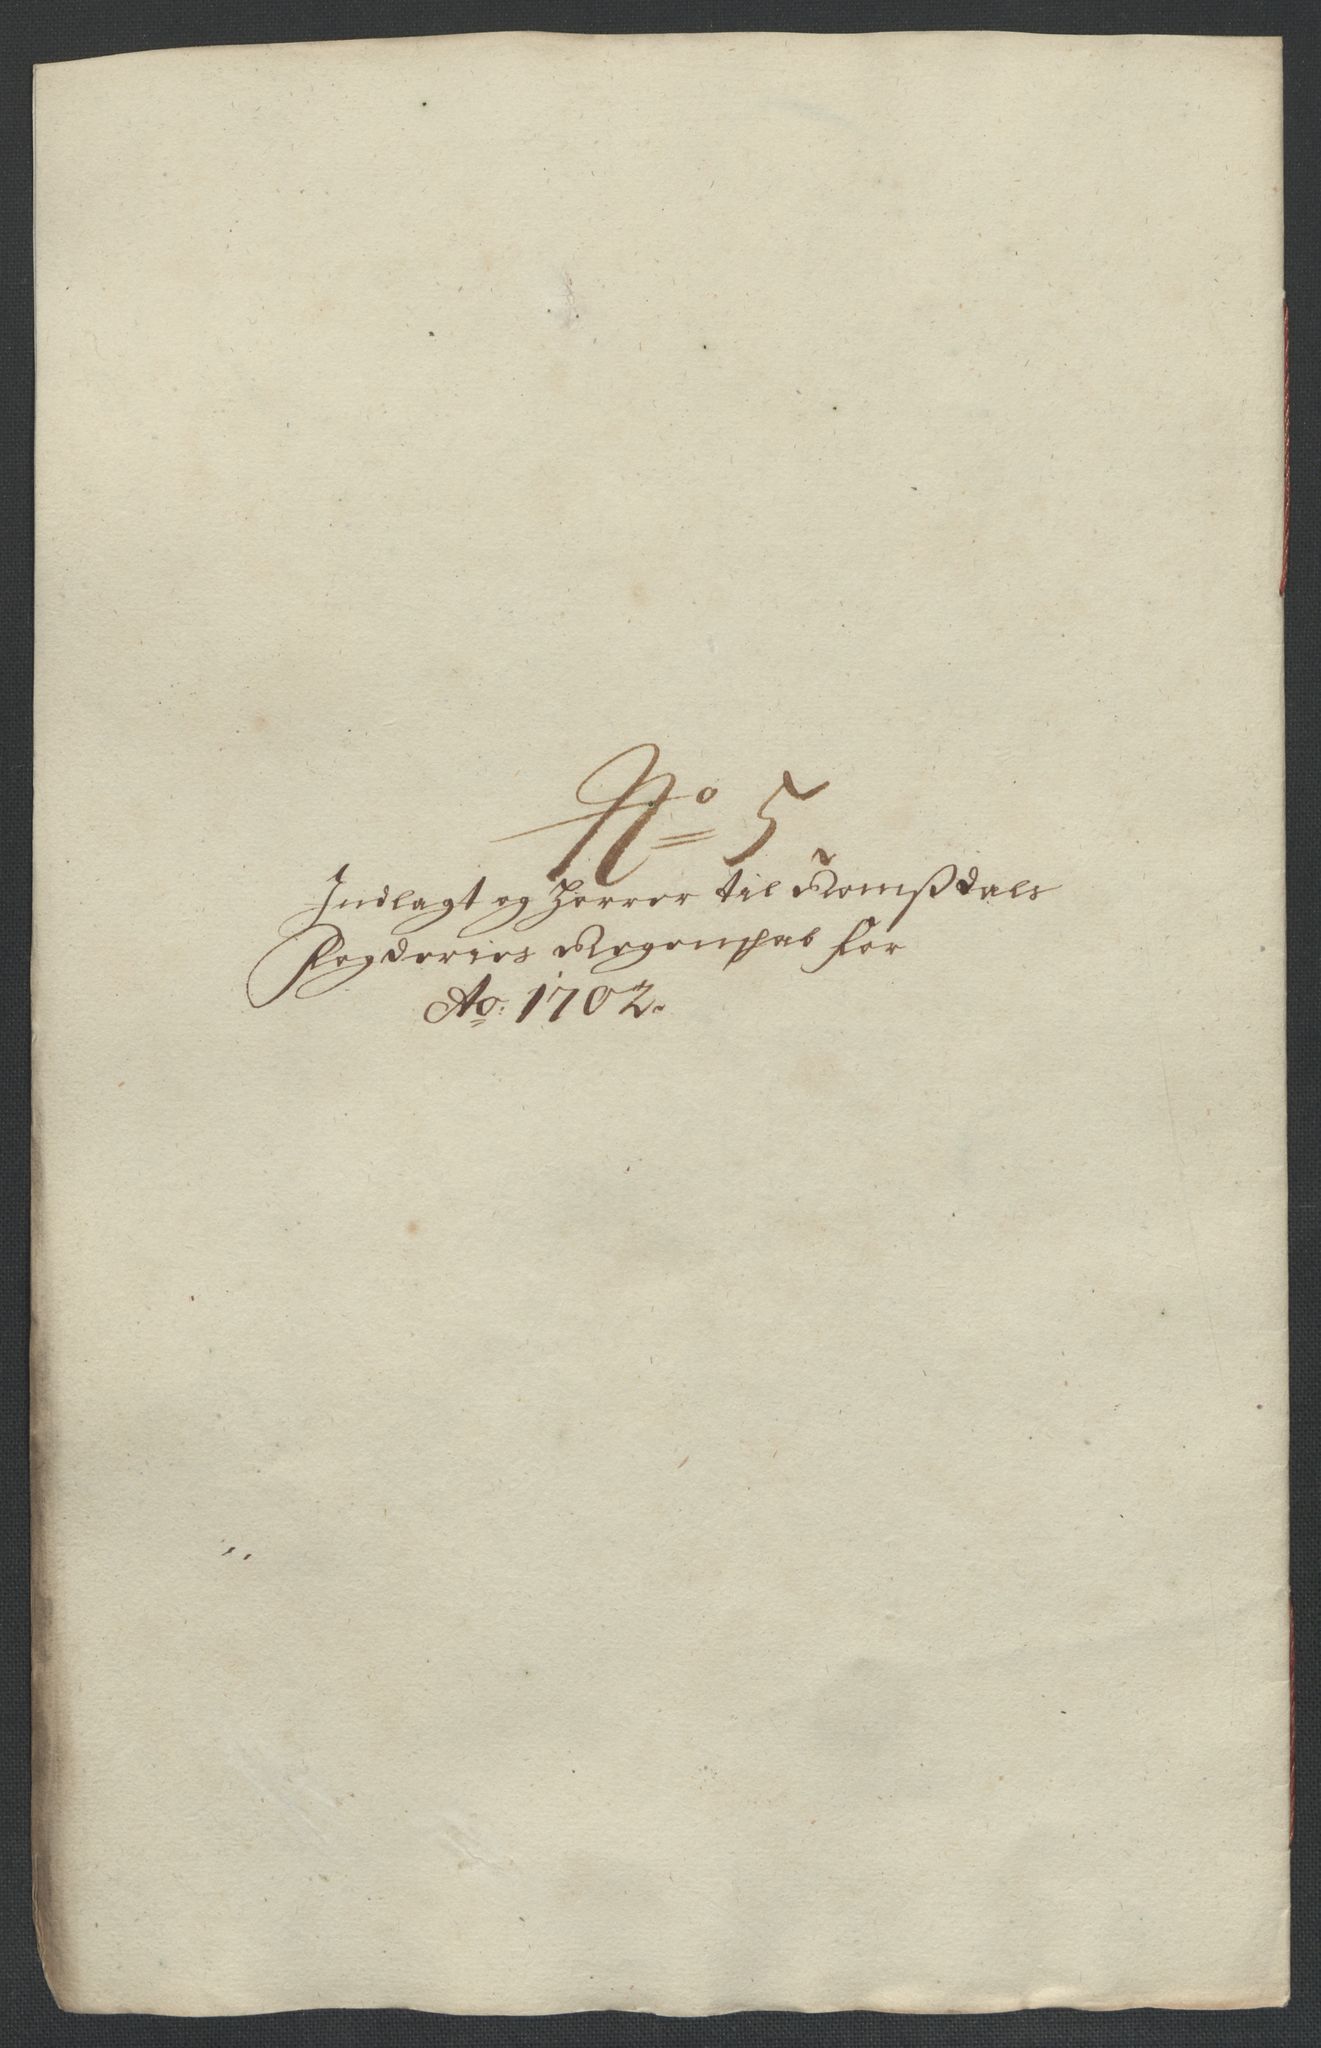 No 5
Indlagt og Hørrer til Romsdals
Fogderies Regenschab for
Ao: 1702.